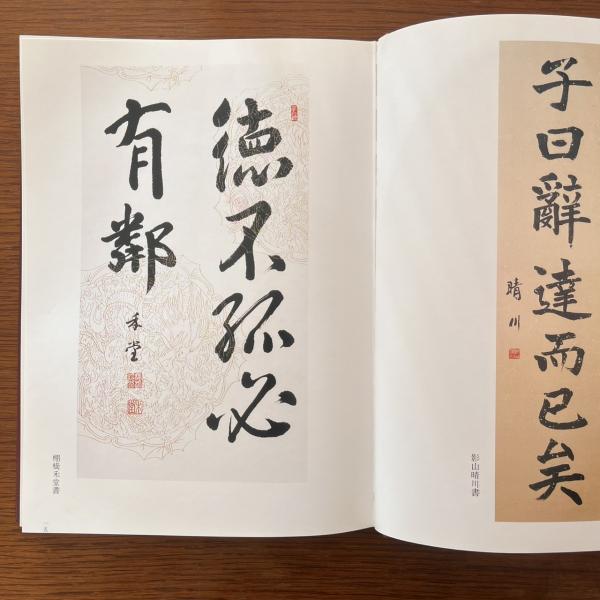 子曰辭達而已矣
晴川
影山晴川書
徳不孤必
有鄰
禾堂
棚橋禾堂書